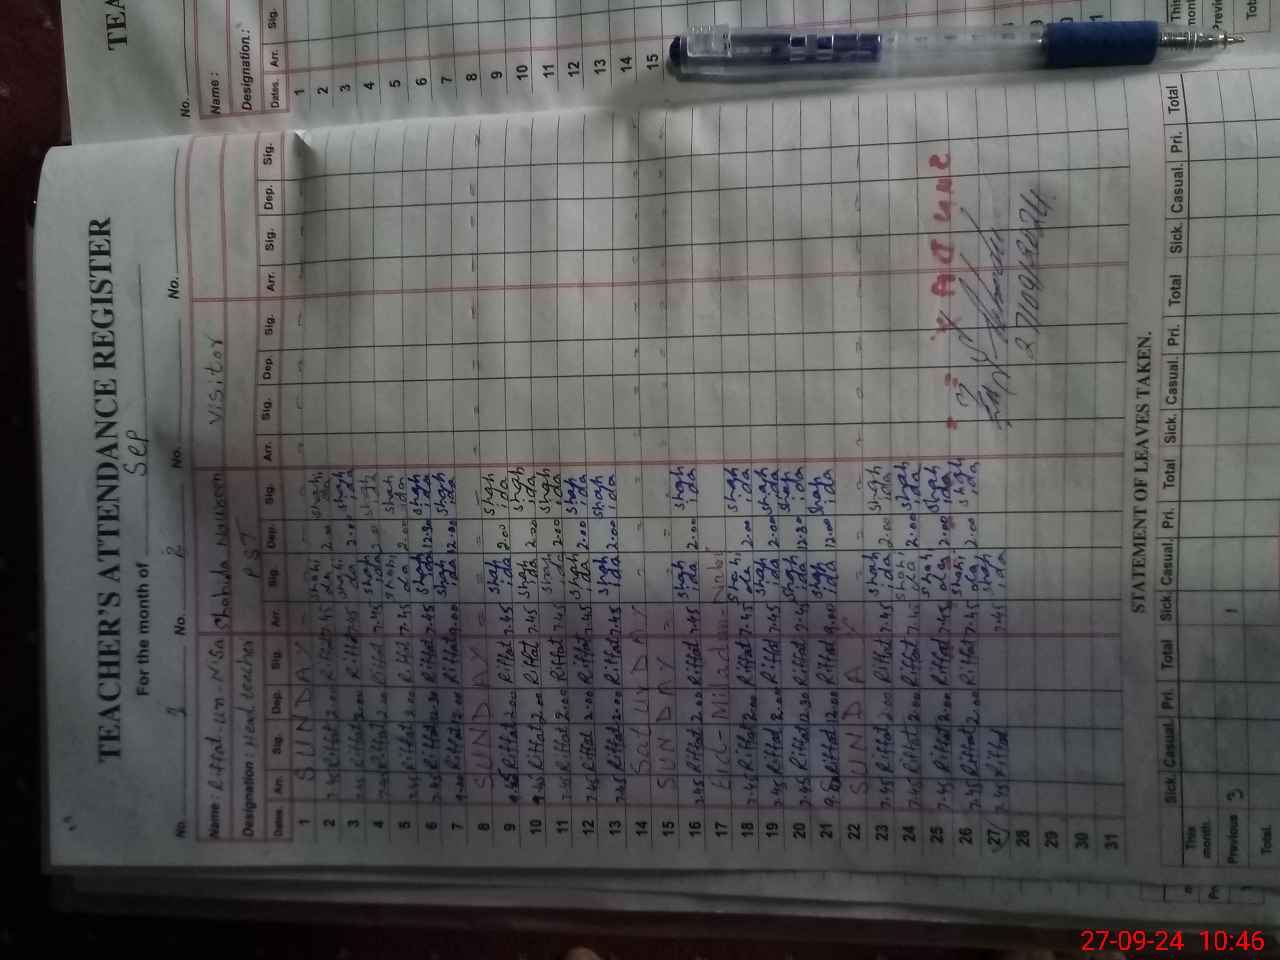 TEACHER'S ATTENDANCE REGISTER
For the month of Sep
No. 1 No. 2 No. No.
Name : Riffat-un-Nisa Shahida Noureen Visitor
Designation : Head teacher PST
Dates. Arr. Sig. Dep. Sig. Arr. Sig. Dep. Sig. Arr. Sig. Dep. Sig. Arr. Sig. Dep. Sig.
1 SUNDAY
2 7.45 Riffat 2.00 Riffat 7.45 Shahida 2.00 Shahida
3 7.45 Riffat 2.00 Riffat 7.45 Shahida 2.00 Shahida
4 7.45 Riffat 2.00 Riffat 7.45 Shahida 2.00 Shahida
5 7.45 Riffat 2.00 Riffat 7.45 Shahida 2.00 Shahida
6 7.45 Riffat 12.30 Riffat 7.45 Shahida 12.30 Shahida
7 9.00 Riffat 12.00 Riffat 9.00 Shahida 12.00 Shahida
8 SUNDAY
9 7.45 Riffat 2.00 Riffat 7.45 Shahida 2.00 Shahida
10 7.45 Riffat 2.00 Riffat 7.45 Shahida 2.00 Shahida
11 7.45 Riffat 2.00 Riffat 7.45 Shahida 2.00 Shahida
12 7.45 Riffat 2.00 Riffat 7.45 Shahida 2.00 Shahida
13 7.45 Riffat 2.00 Riffat 7.45 Shahida 2.00 Shahida
14 SATURDAY
15 SUNDAY
16 7.45 Riffat 2.00 Riffat 7.45 Shahida 2.00 Shahida
17 Eid-Milad-un-Nabi
18 7.45 Riffat 2.00 Riffat 7.45 Shahida 2.00 Shahida
19 7.45 Riffat 2.00 Riffat 7.45 Shahida 2.00 Shahida
20 7.45 Riffat 12.30 Riffat 7.45 Shahida 12.30 Shahida
21 9.00 Riffat 12.00 Riffat 9.00 Shahida 12.00 Shahida
22 SUNDAY
23 7.45 Riffat 2.00 Riffat 7.45 Shahida 2.00 Shahida
24 7.45 Riffat 2.00 Riffat 7.45 Shahida 2.00 Shahida
25 7.45 Riffat 2.00 Riffat 7.45 Shahida 2.00 Shahida
26 7.45 Riffat 2.00 Riffat 7.45 Shahida 2.00 Shahida
27 7.45 Riffat 7.45 Shahida
28
27/09/2024
29
30
31
STATEMENT OF LEAVES TAKEN.
Sick. Casual. Pri. Total Sick. Casual. Pri. Total Sick. Casual. Pri. Total Sick. Casual. Pri. Total
This month.
Previous 3 1
Total.
No.
Name :
Designation :
Dates. Arr. Sig.
1
2
3
4
5
6
7
8
9
10
11
12
13
14
15
27-09-24 10:46